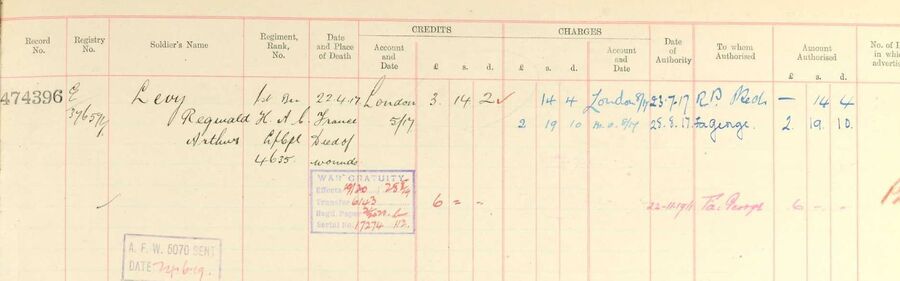 CREDITS CHARGES
Record No. Registry No. Soldier's Name Regiment, Rank, No. Date and Place of Death Account and Date £ s. d. £ s. d. Account and Date Date of Authority To whom Authorised Amount Authorised £ s. d. No. of in which
474396 E Levy 1st Bn 22.4.17 London 3. 14. 2 14 4 London 8/17 23.7.17 — 14 4
Reginald H.A.C. France 5/17 2 19 10 28.8.17 Fa George. 2. 19. 10.
Arthur L/Cpl Died of
4635. wounds
WAR GRATUITY
Effects
Transfer 6143 6 = - 22-11-19 Fa George 6 - -
Regd. Paper
Serial No. 17274
A. F. W. 5070 SENT
DATE